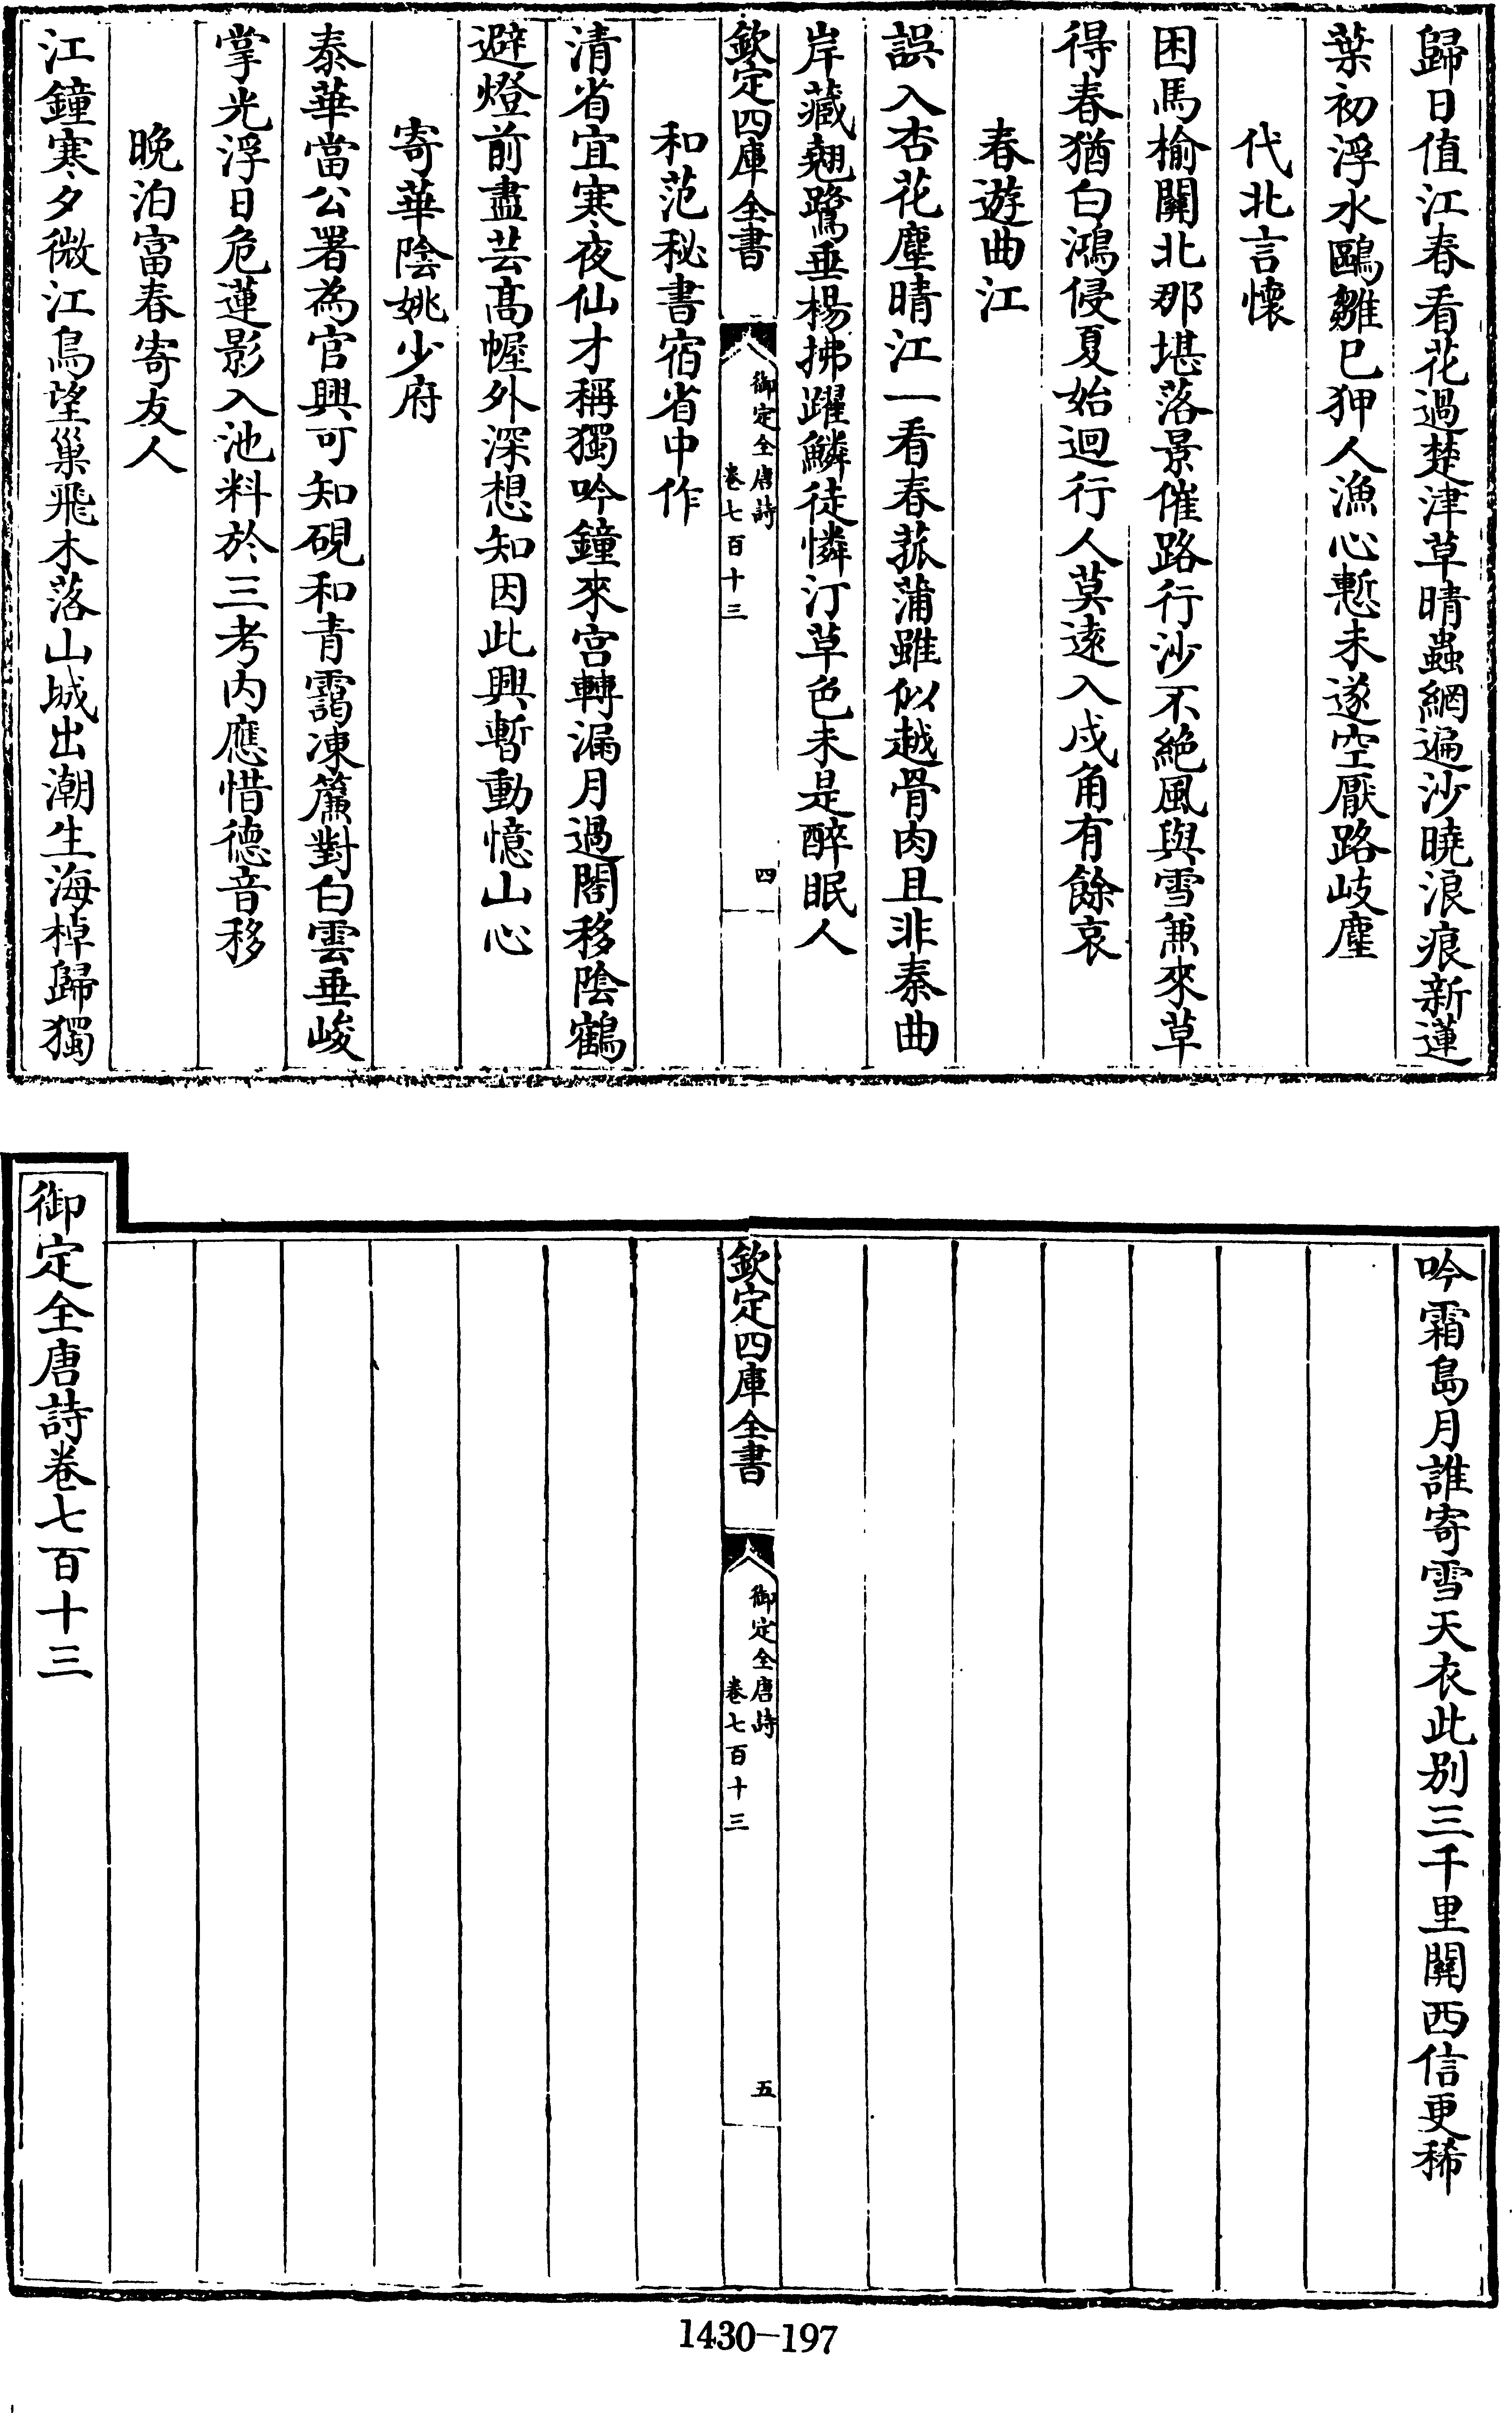 歸日值江春看花過楚津草晴蟲網遍沙曉浪痕新蓮
葉初浮水鷗雛已狎人漁心慙未遂空厭路岐塵
代北言懷
困馬榆關北那堪落景催路行沙不絶風與雪兼來草
得春猶白鴻侵夏始迴行人莫逺入戍角有餘哀
春遊曲江
誤入杏花塵晴江一看春菰蒲雖似越骨肉且非秦曲
岸藏翹鷺垂楊拂躍鱗徒憐汀草色未是醉眠人
欽定四庫全書
御定全唐詩
卷七百十三
四
和范秘書宿省中作
清省宜寒夜仙才稱獨吟鐘來宫轉漏月過閣移陰鶴
避燈前盡芸髙幄外深想知因此興暫動憶山心
寄華陰姚少府
泰華當公署為官興可知硯和青靄凍簾對白雲垂峻
掌光浮日危蓮影入池料於三考内應惜德音移
晚泊富春寄友人
江鐘寒夕微江鳥望巢飛木落山城出潮生海棹歸獨
吟霜島月誰寄雪天衣此别三千里關西信更稀
欽定四庫全書
御定全唐詩
卷七百十三
五
御定全唐詩卷七百十三
1430—197